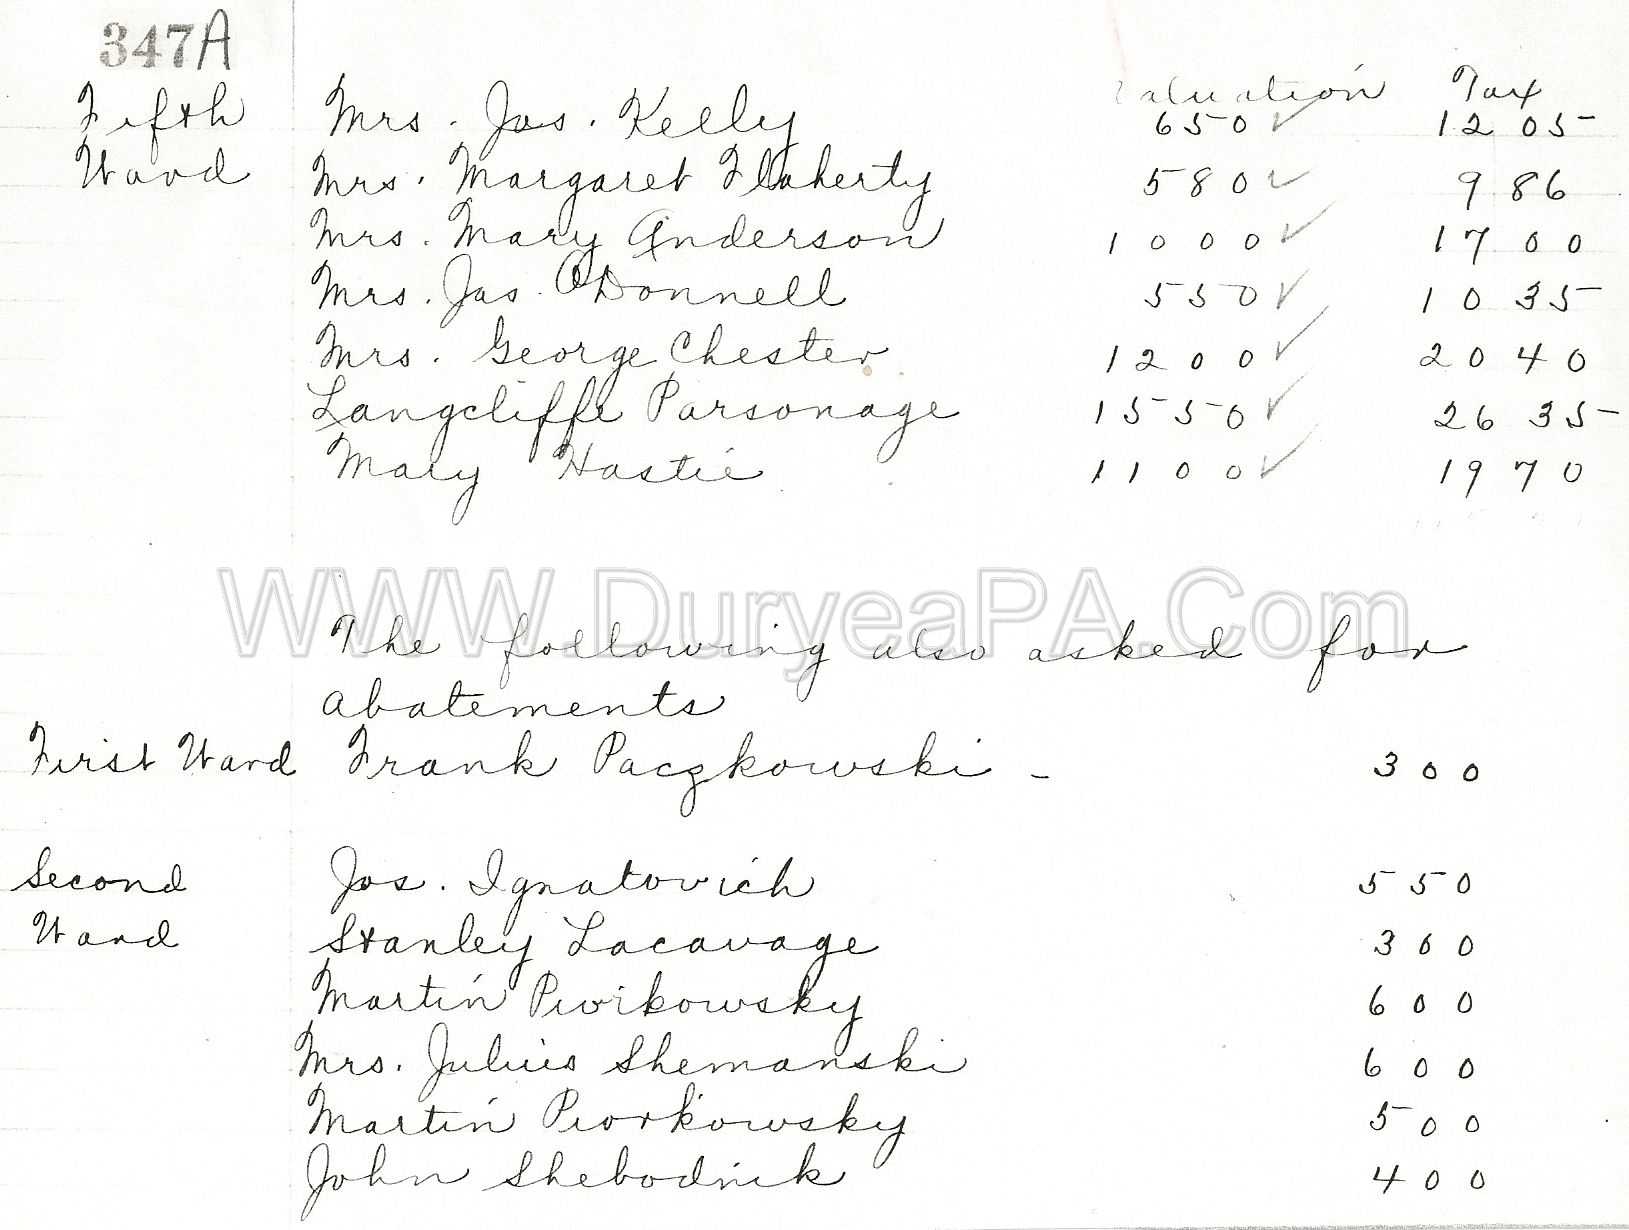 347A
Valuation Tax
Fifth Mrs. Jas. Kelly 650 ✓ 12 05
Ward Mrs. Margaret Flaherty 580 ✓ 9 86
Mrs. Mary Anderson 1000 ✓ 17 00
Mrs. Jas. O'Donnell 550 ✓ 10 35
Mrs. George Chester 1200 ✓ 20 40
Langcliffe Parsonage 1550 ✓ 26 35
Mary Hastie 1100 ✓ 19 70
WWW.DuryeaPA.Com
The following also asked for
abatements
First Ward Frank Paczkowski - 300
Second Jos. Ignatovich 550
Ward Stanley Lacavage 300
Martin Pivikowsky 600
Mrs. Julius Shemanski 600
Martin Piorkowsky 500
John Shebodnik 400